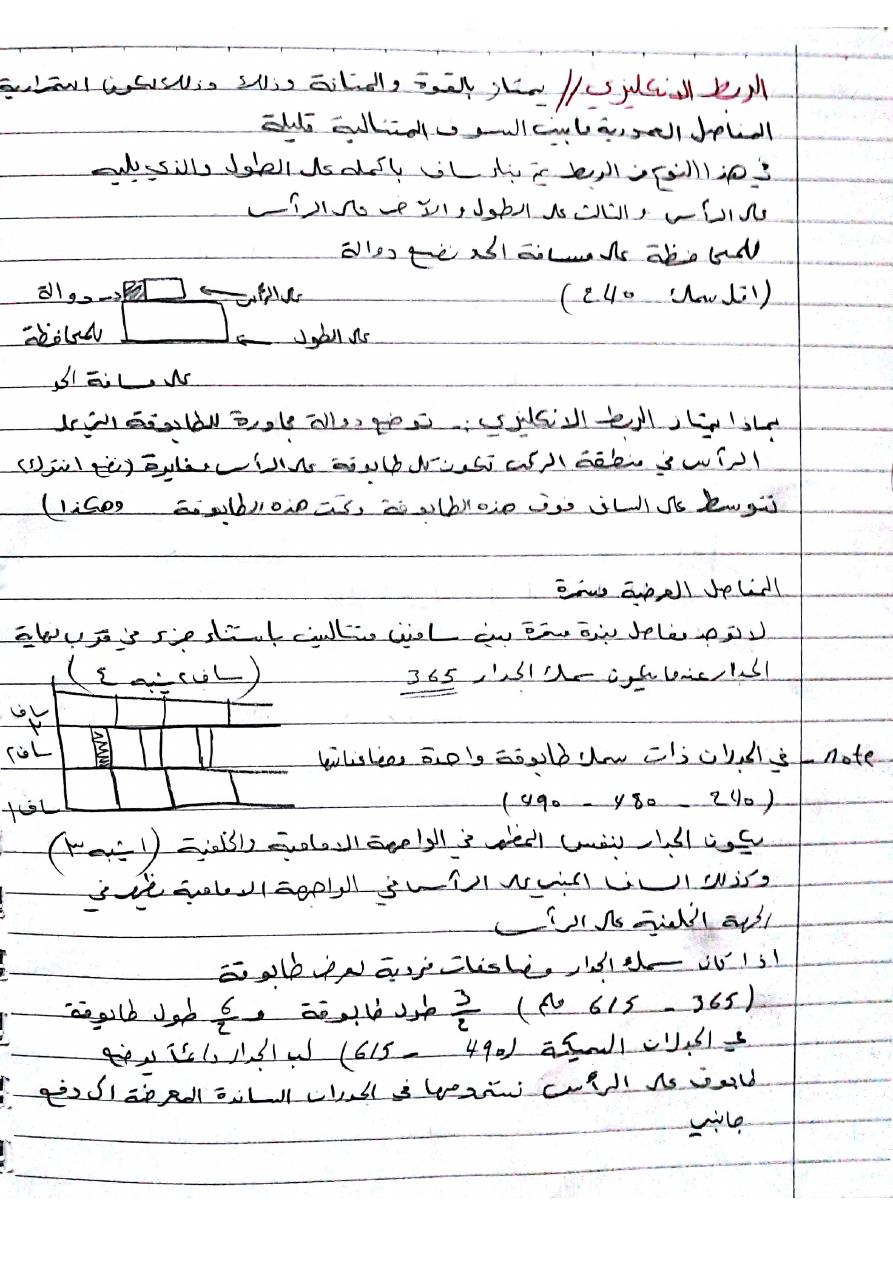 الربط الانكليزي // يمتاز بالقوة والمتانة وذلك وذلك لكون استمرارية
المفاصل العمودية مابين السوف المتتالية قليلة
في هذا النوع من الربط يتم بناء ساف باكمله على الطول والذي يليه
على الرأس والثالث على الطول والآخر على الرأس
للمحافظة على مسافة الحد نضع دوالة
(اقل سمك 240)
على الرأس دوالة
على الطول للمحافظة
على مسافة الحد
بماذا يمتاز الربط الانكليزي :- توضع دوالة مجاورة للطابوقة التي على
الرأس في منطقة الركن تكون كل طابوقة على الرأس مغايرة (نضع اشترك)
تتوسط على الساف فوق هذه الطابوقة وتحت هذه الطابوقة وهكذا)
المفاصل العرضية مستمرة
لا توجد مفاصل بنزة مستمرة بين سافين متتاليين باستثناء جزء في قرب نهاية
الجدار عندما يكون سمك الجدار 365 (ساف٢ يشبه ٤)
ساف ٣
ساف٢
ساف١
Note - في الجدران ذات سمك طابوقة واحدة ومضاعفاتها
(240 - 480 - 490)
يكون الجدار بنفس المظهر في الواجهة الامامية والخلفية (١ يشبه ٣)
وكذلك الساف المبني على الرأس في الواجهة الامامية يظهر في
الجهة الخلفية على الرأس
اذا كان سمك الجدار مضاعفات فردية لعرض طابوقة
(365 - 615 ملم) 3/2 طول طابوقة و 5/2 طول طابوقة
في الجدران السميكة (490 - 615) لب الجدار دائماً يوضع
طابوق على الرأس نستخدمها في الجدران الساندة المعرضة الى دفع
جانبي